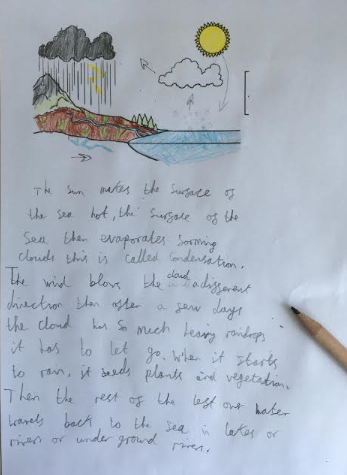 The sun makes the surface of
the sea hot, the surface of the
Sea then evaporates forming
clouds this is called condensation.
The wind blows the cloud in a different
direction then after a few days
the cloud has so much heavy raindrops
it has to let go. When it starts
to rain, it feeds plants and vegetation.
Then the rest of the left over water
travels back to the sea in lakes or
rivers or under ground rivers.